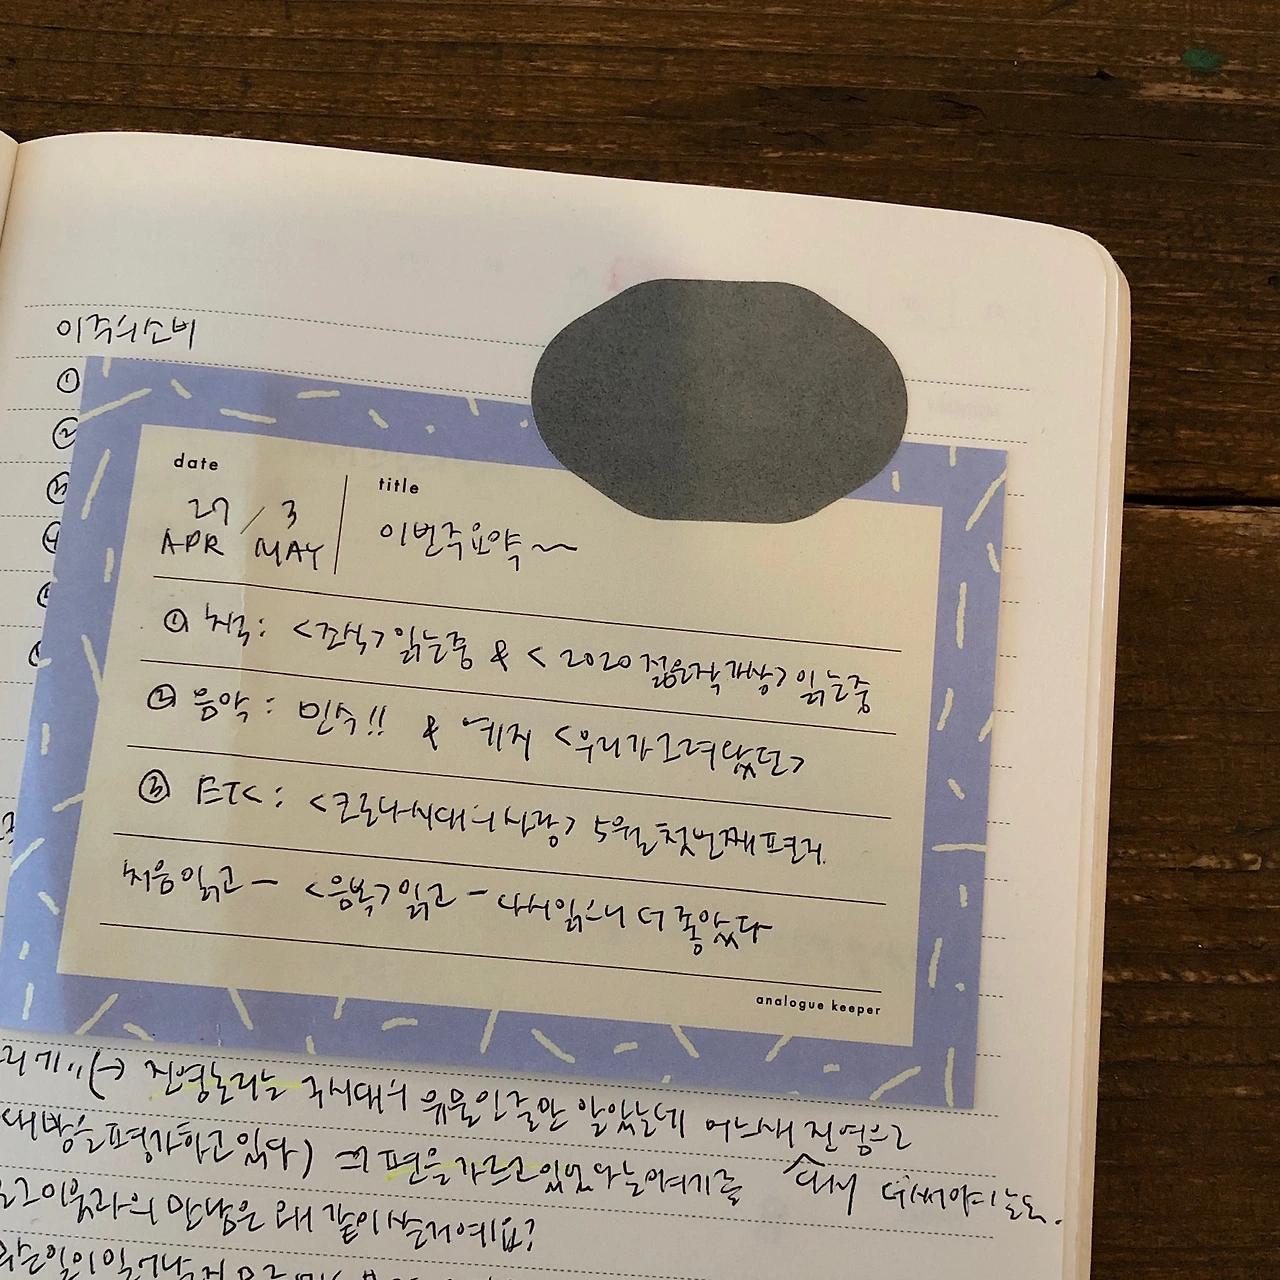 이주의소비
①
②
③
date
27 / 3
APR MAY
title
이번주요약~
① 책: <조식> 읽는중 & < 2020 젊은작가상> 읽는중
② 음악: 민수!! & 예지 <우리가그려왔던>
③ ETC: <코로나시대의사랑> 5월첫번째편지.
처음읽고 — <음복>읽고 — 다시읽으니 더 좋았다
analogue keeper
진영논리는 구시대의 유물인줄만 알았는데 어느새 진영으로
평가하고있다) ⇒ 편을가르고있었다는얘기를
만남은 왜 같이쓴거예요?